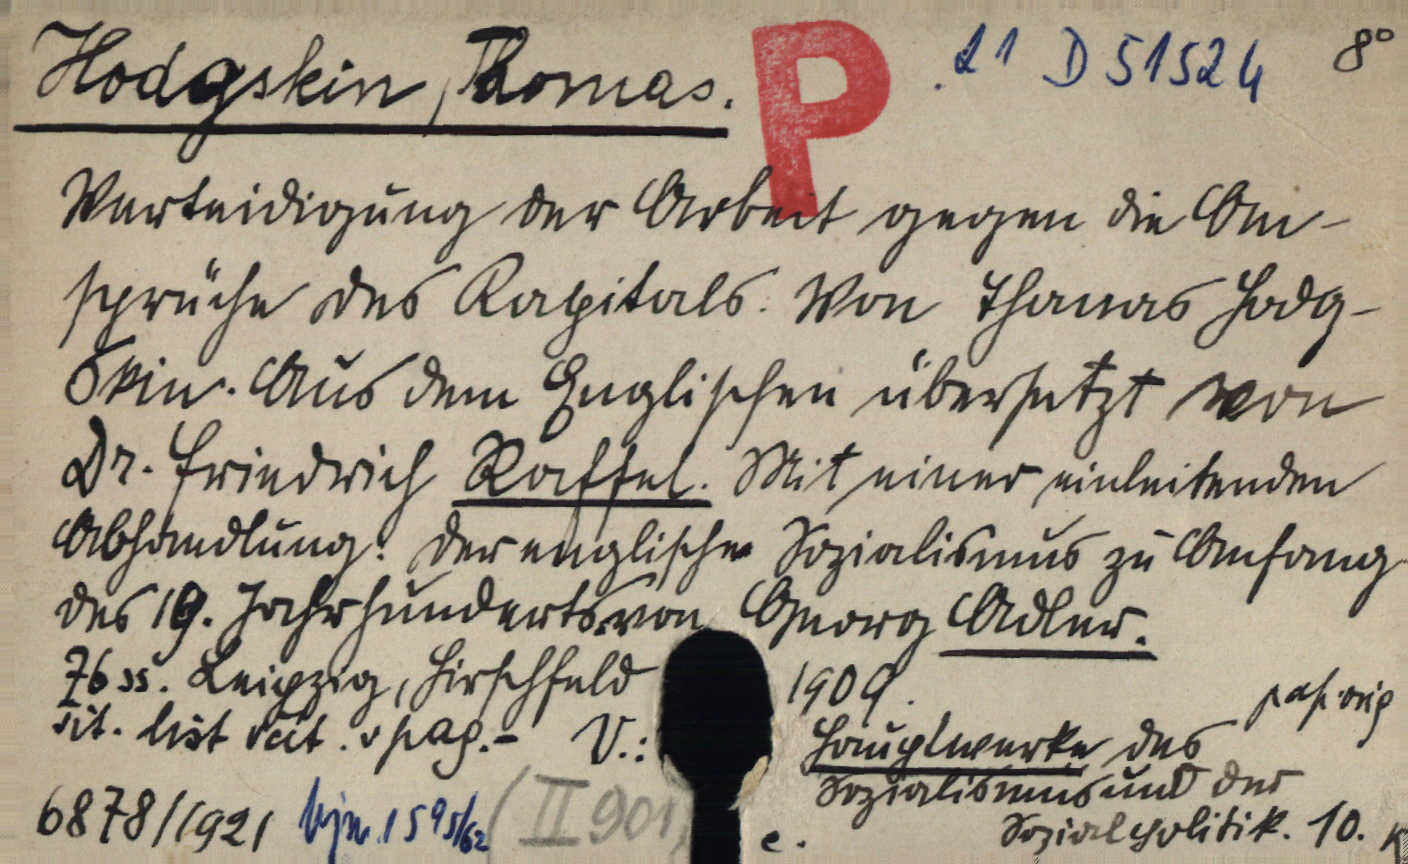 Hodgskin, Thomas. P 21 D 51524 8°
Verteidigung der Arbeit gegen die An-
sprüche des Kapitals. Von Thomas Hodg-
skin. Aus dem Englischen übersetzt von
Dr. Friedrich Raffel. Mit einer einleitenden
Abhandlung: Der englische Sozialismus zu Anfang
des 19. Jahrhunderts von Georg Adler.
76 ss. Leipzig, Hirschfeld 1909.
tit. list pap. orig
V.: Hauptwerke des
Sozialismus und der
Sozialpolitik. 10.
6878/1921 1595/62 (II 901) e.